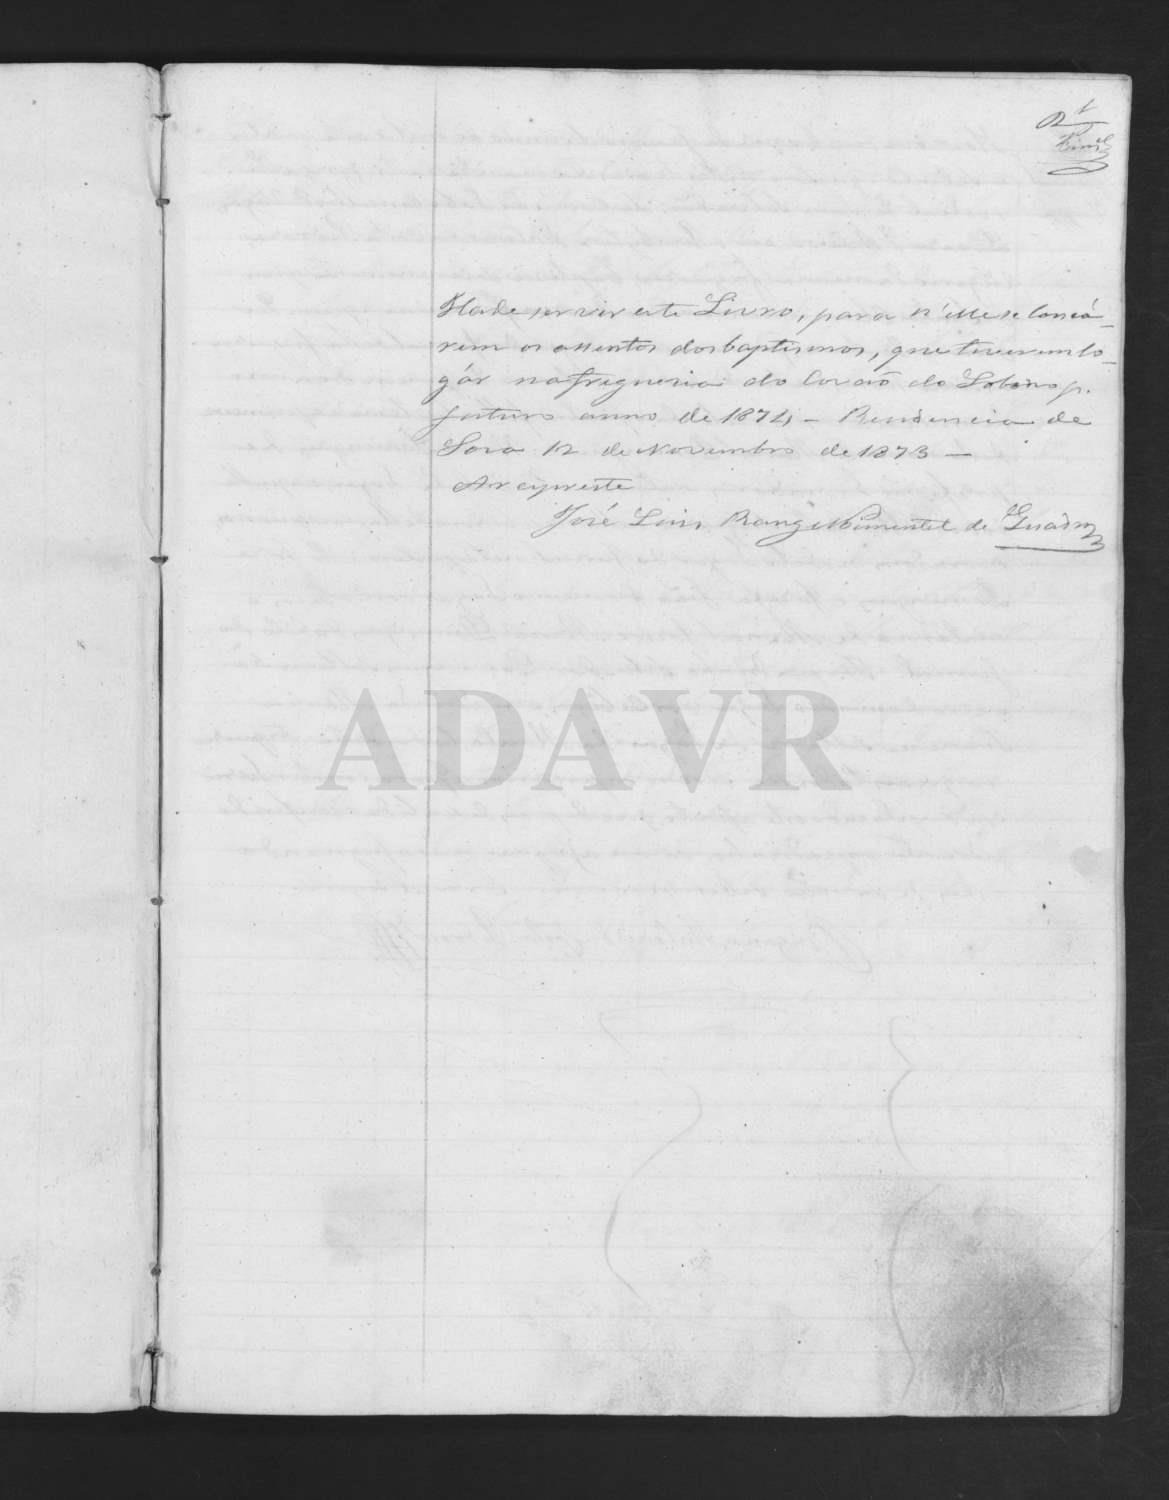 1
Pim.el
Hade servir este Livro, para n'elle se lançá-
rem os assentos dos baptismos, que tiverem lo-
gár na freguesia do Covão do Lobo no p.
futuro anno de 1874 - Residencia de
Soza 12 de Novembro de 1873 -
Arcypreste
José Luis Rangel Pimentel de Quadros
ADAVR